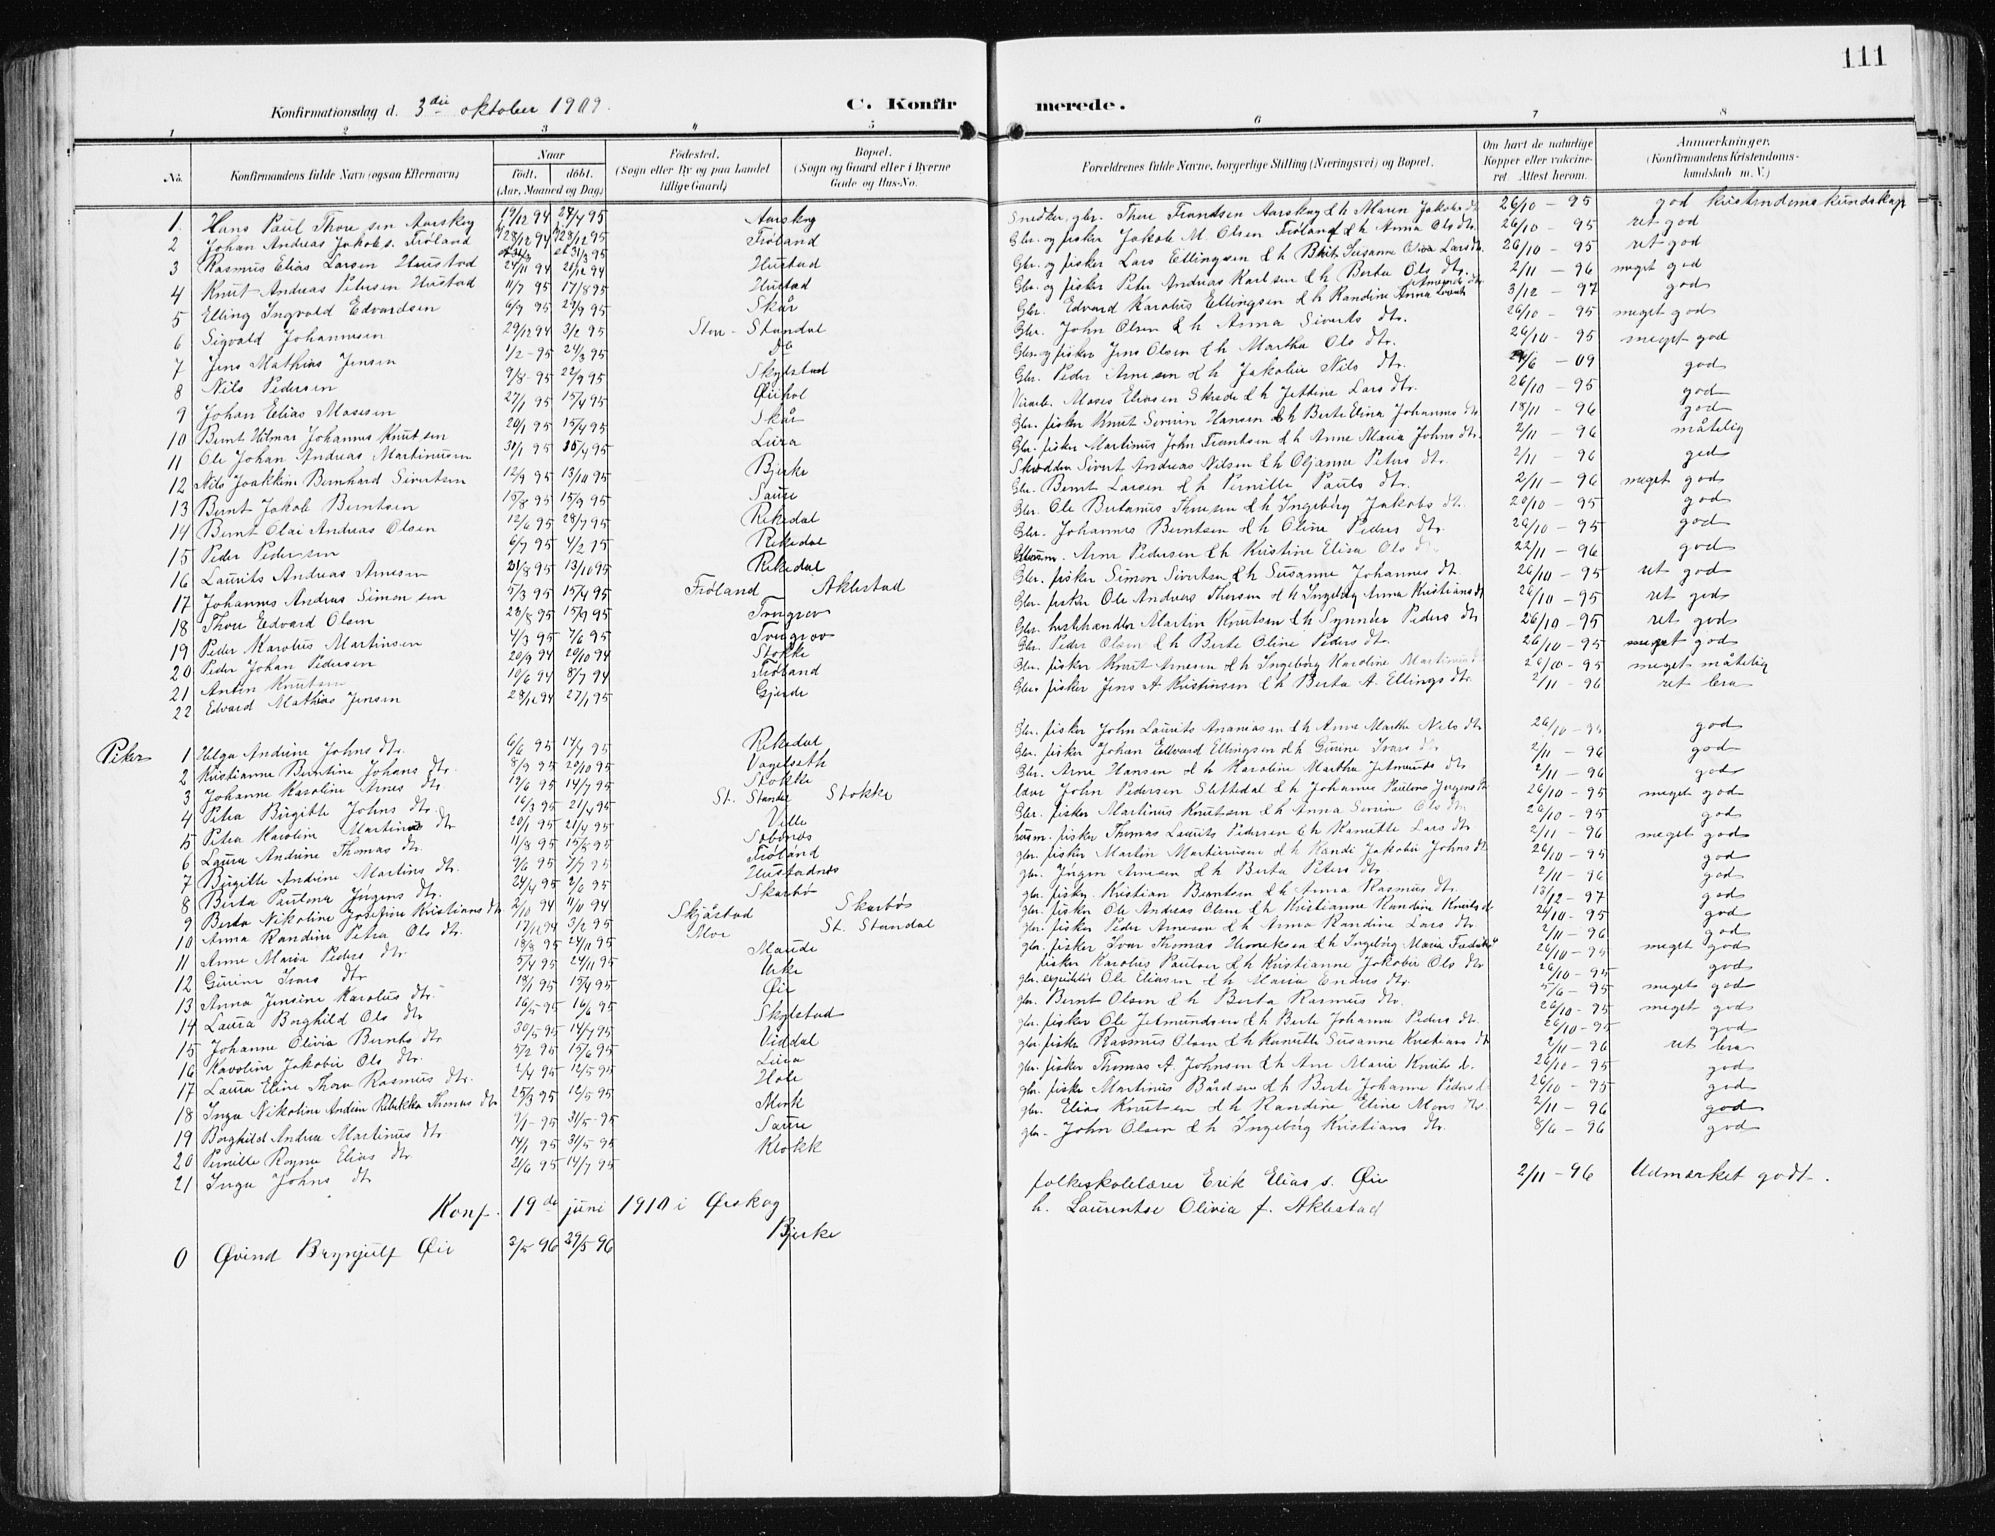 111
Konfirmationsdag d. 3die oktober 1909. C. Konfirmerede.
1 2 3 4 5 6 7 8
No. Konfirmandens fulde Navn (ogsaa Efternavn) Naar født, døbt. (Aar, Maaned og Dag) Fødested. (Sogn eller By og paa Landet tillige Gaard) Bopæl. (Sogn og Gaard eller i Byerne Gade og Hus-No. Forældrenes fulde Navne, borgerlige Stilling (Næringsvei) og Bopæl. Om havt de naturlige Kopper eller vakcineret. Attest herom. Anmærkninger. (Konfirmandens Kristendomskundskab m. V.)
1. Hans Paul Thore sen Aarskog 19/12 94 Aarskog Snedker, gbr. Thore Frandsen Aarskog & h Maren Jakobs dt 26/10 - 95 god kristendomskundskap
2 Johan Andreas Jakobs. Frøland Frøland Gbr. og fisker Jakob M. Olsen Frøland & h Anna Ols dt. 26/10 - 95 ret god
3 Rasmus Elias Larsen Hustad 24/11 94 Hustad Gbr. og fisker Lars Ellingsen & h Brit Susanne Lars dt. 26/10 - 95 ret god
4 Knut Andreas Petersen Hustad 11/7 95 17/8 95 Hustad Gbr. og fisker Peter Andreas Karlsen & h Berta Ols dtr. 2/11 - 96 meget god
5 Elling Ingvald Edvardsen 6/9 95 29/9 95 Skår Gbr. Edvard Karolus Ellingsen & h Randine Anna 3/12 - 97 god
6 Sigvald Johannesen 29/12 94 3/2 95 Store-Standal Gbr. John Olsen & h Anna Siverts dtr. 26/10 - 95 meget god
7 Jens Mathias Jensen 1/2 - 95 24/3 95 do Gbr. og fisker Jens Olsen & h Martha Ols dtr. 26/10 - 95 meget god
8 Nils Pedersen 9/8 - 95 22/9 95 Skylstad Gbr. Peder Arnesen & h Jakobie Nils dtr. /6 - 09 god
9 Johan Elias Mosesen 27/1 95 15/4 95 Øiehol Moses Eliasen Skrede & h Jettine Lars dtr. 26/10 - 95 god
10 Bernt Hilmar Johannes Knutsen 20/1 95 15/4 95 Skår Gbr. fisker Knut Severin Hansen & h Berte Elina Johannes dtr 18/11 - 96 god
11 Ole Johan Andreas Martinusen 30/1 95 15/4 95 Lura Gbr. fisker Martinus John Frantsen & h Anne Maria Johns dtr. 2/11 - 96 måtelig
12 Nils Joakkim Bernhard Sivertsen 12/9 95 13/10 95 Bjerke Skrædder Sivert Andreas Nilsen & h Oljanna Peters dtr. 2/11 - 96 god
13 Bernt Jakob Berntsen 15/8 95 15/9 95 Saure Gbr. Bernt Larsen & h Pernille Pauls dtr. 2/11 - 96 meget god
14 Bernt Olai Andreas Olsen 12/6 95 28/7 95 Rekedal Gbr. Ole Bertanus Thoresen & h Ingeborg Jakobs dt. 26/10 - 95 god
15 Peder Pedersen 6/7 95 Rekedal Gbr. Johannes Berntsen & h Oline Peders dtr. 26/10 - 95 god
16 Laurits Andreas Arnesen 21/8 95 13/10 95 Rekedal Arne Pedersen & h Kristine Elisa Ols dt 22/11 - 96 god
17 Johannes Andreas Simonsen 5/3 95 15/4 95 Frøland Aklestad Gbr. fisker Simon Sivertsen & h Susanne Johannes dt. 26/10 - 95 ret god
18 Thore Edvard Olsen 23/8 95 15/9 95 Gbr. fisker Ole Andreas Thoresen & h Ingeborg Anna Kristians dt 26/10 - 95 ret god
19 Peder Karolus Martinsen 4/3 95 7/6 95 Gbr. hestehandler Martin Knutsen & h Synnøve Peders dtr 26/10 - 95 ret god
20 Peder Johan Pedersen 20/9 94 20/10 94 Stokke Gbr. Peder Olsen & h Berte Oline Peders dtr. 26/10 - 95 meget god
21 Anton Knutsen 10/6 94 8/7 94 Frøland Gbr. fisker Knut Arnesen & h Ingeborg Karoline Martinus d 26/10 - 95 meget måtelig
22 Edvard Mathias Jensen 28/12 94 27/1 95 Gjerde Gbr. fisker Jens A Kristinsen & h Berta A. Ellings dtr. 2/11 - 96 ret bra
Piker 1 Helga Andrine Johns dtr. 6/6 95 14/7 95 Rekedal Gbr. fisker John Laurits Ananiasen & h Anne Martha Nils dtr 26/10 - 95 god
2 Kristianne Berntine Johans dtr. 8/9 95 20/10 95 Vagelseth Gbr. fisker Johan Edvard Ellingsen & h Gurine Ivars dtr 2/11 - 96 god
3 Johanne Karoline Arnes dtr 19/6 95 14/7 95 Stokke Gbr. Arne Hansen & h Karoline Martha Jetmunds dtr. 2/11 - 96 god
4 Petra Birgitte Johns dtr. 16/3 95 21/4 95 St. Standal Stokke John Pedersen Slettedal & h Johanne Pauline Jørgens dtr 26/10 - 95 meget god
5 Petra Karoline Martinus dtr 20/1 95 21/4 95 Ville Gbr. fisker Martinus Knutsen & h Anna Severine Ols dtr. 26/10 - 95 god
6 Laura Andrine Thomas dtr. 11/8 95 15/9 95 Sæbønes husm. fisker Thomas Laurits Pedersen & h Kanutte Lars dtr 2/11 - 96 meget god
7 Birgitte Andrine Martins dtr. 9/6 95 7/7 95 Frøland gbr. fisker Martin Martinusen & h Randi Jakobie Johns dtr 26/10 - 95 god
8 Berta Paulina Jørgens dtr. 24/4 95 2/6 95 Hustadnes gbr. Jørgen Arnesen & h Berta Peters dtr. 2/11 - 96 god
9 Berta Nikoline Josefine Kristians dtr 2/10 94 11/11 94 Skarbø gbr. fisker. Kristian Berntsen & h Anna Rasmus dtr. 13/12 - 97 god
10 Anna Randine Petra Ols dtr. 17/12 94 3/2 95 Skjåstad Skarbøs gbr. fisker Ole Andreas Olsen & h Kristianne Randine Knuts dt 26/10 - 95 god
11 Anne Marie Peders dtr. 18/8 95 24/11 95 Mor St. Standal gbr. fisker Peder Arnesen & h Anna Randine Lars dtr 2/11 - 96 god
12 Gurine Ivars dtr 5/4 95 24/11 95 Maude gbr. fisker Ivar Thomas Henriksen & h Ingeborg Maria Fredriks 26/10 - 95 meget god
13 Anna Jensine Karolus dtr. 18/1 95 15/4 95 Urke fisker Karolus Paulsen & h Kristianne Jakobie Ols dtr 26/10 - 95 god
14 Laura Borghild Ols dtr 16/5 - 95 16/6 95 Øie gbr. expeditør Ole Eliasen & h Maria Endres dtr. 5/6 - 95 meget god
15 Johanne Olivia Bernts dtr 30/5 - 95 14/7 95 Skylstad gbr. Bernt Olsen & h Berta Rasmus dtr. 26/10 - 95 meget god
16 Karoline Jakobie Ols dtr. 5/2 95 15/6 95 Viddal gbr. fisker Ole Jetmundsen & h Berte Johanna Peders dtr. 26/10 - 95 god
17 Laura Eline Thora Rasmus dtr. 2/4 95 12/5 95 Lura gbr. fisker Rasmus Olsen & h Kanutte Susanne Kristians dtr 2/11 - 96 ret bra
18 Inga Nikoline Andrine Rebekka Thomas dtr 25/3 95 12/5 95 Hole gbr. fisker Thomas A. Johnsen & h Ane Marie Knuts d. 26/10 - 95 god
19 Borghild Andrea Martinus dtr 7/1 - 95 31/5 - 95 Mork gbr. fisker Martinus Bårdsen & h Berte Johanne Peders d 26/10 - 95 god
20 Pernille Ragna Elias dtr 14/1 95 31/5 - 95 Saure gbr. Elias Knutsen & h Randine Eline Mons dtr. 2/11 - 96 god
21 Inga Johns dtr 21/6 95 14/7 95 Klokk gbr. John Olsen & h Ingeborg Kristians dtr. 8/6 - 96 god
Konf. 19de juni 1910 i Ørskog
0 Øvind Brynjulf Øie 3/5 96 29/5 96 Bjerke folkeskolelærer Erik Elias s. Øie 2/11 - 96 Udmerket godt.
h. Laurentse Olivia f. Aklestad